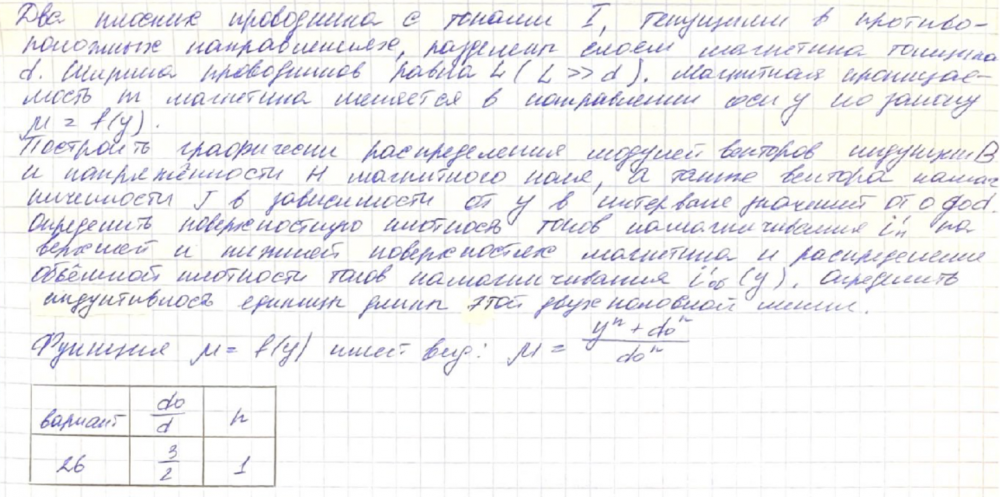 Два плоских проводника с токами I, текущими в противо-
положных направлениях, разделены слоем магнетика толщиной
d. Ширина проводников равна L (L >> d). Магнитная проницае-
мость m магнетика меняется в направлении оси y по закону
μ = f(y).
Построить графически распределения модулей векторов индукции B
и напряжённости H магнитного поля, а также вектора намаг
ниченности J в зависимости от y в интервале значений от 0 до d.
Определить поверхностную плотность токов намагничивания i'п на
верхней и нижней поверхностях магнетика и распределение
объёмной плотности токов намагничивания i'об (y). Определить
индуктивность единицы длины этой двухполосной линии.
Функция μ = f(y) имеет вид: μ = (yⁿ + d₀ⁿ)/d₀ⁿ
вариант d₀/d n
26 3/2 1